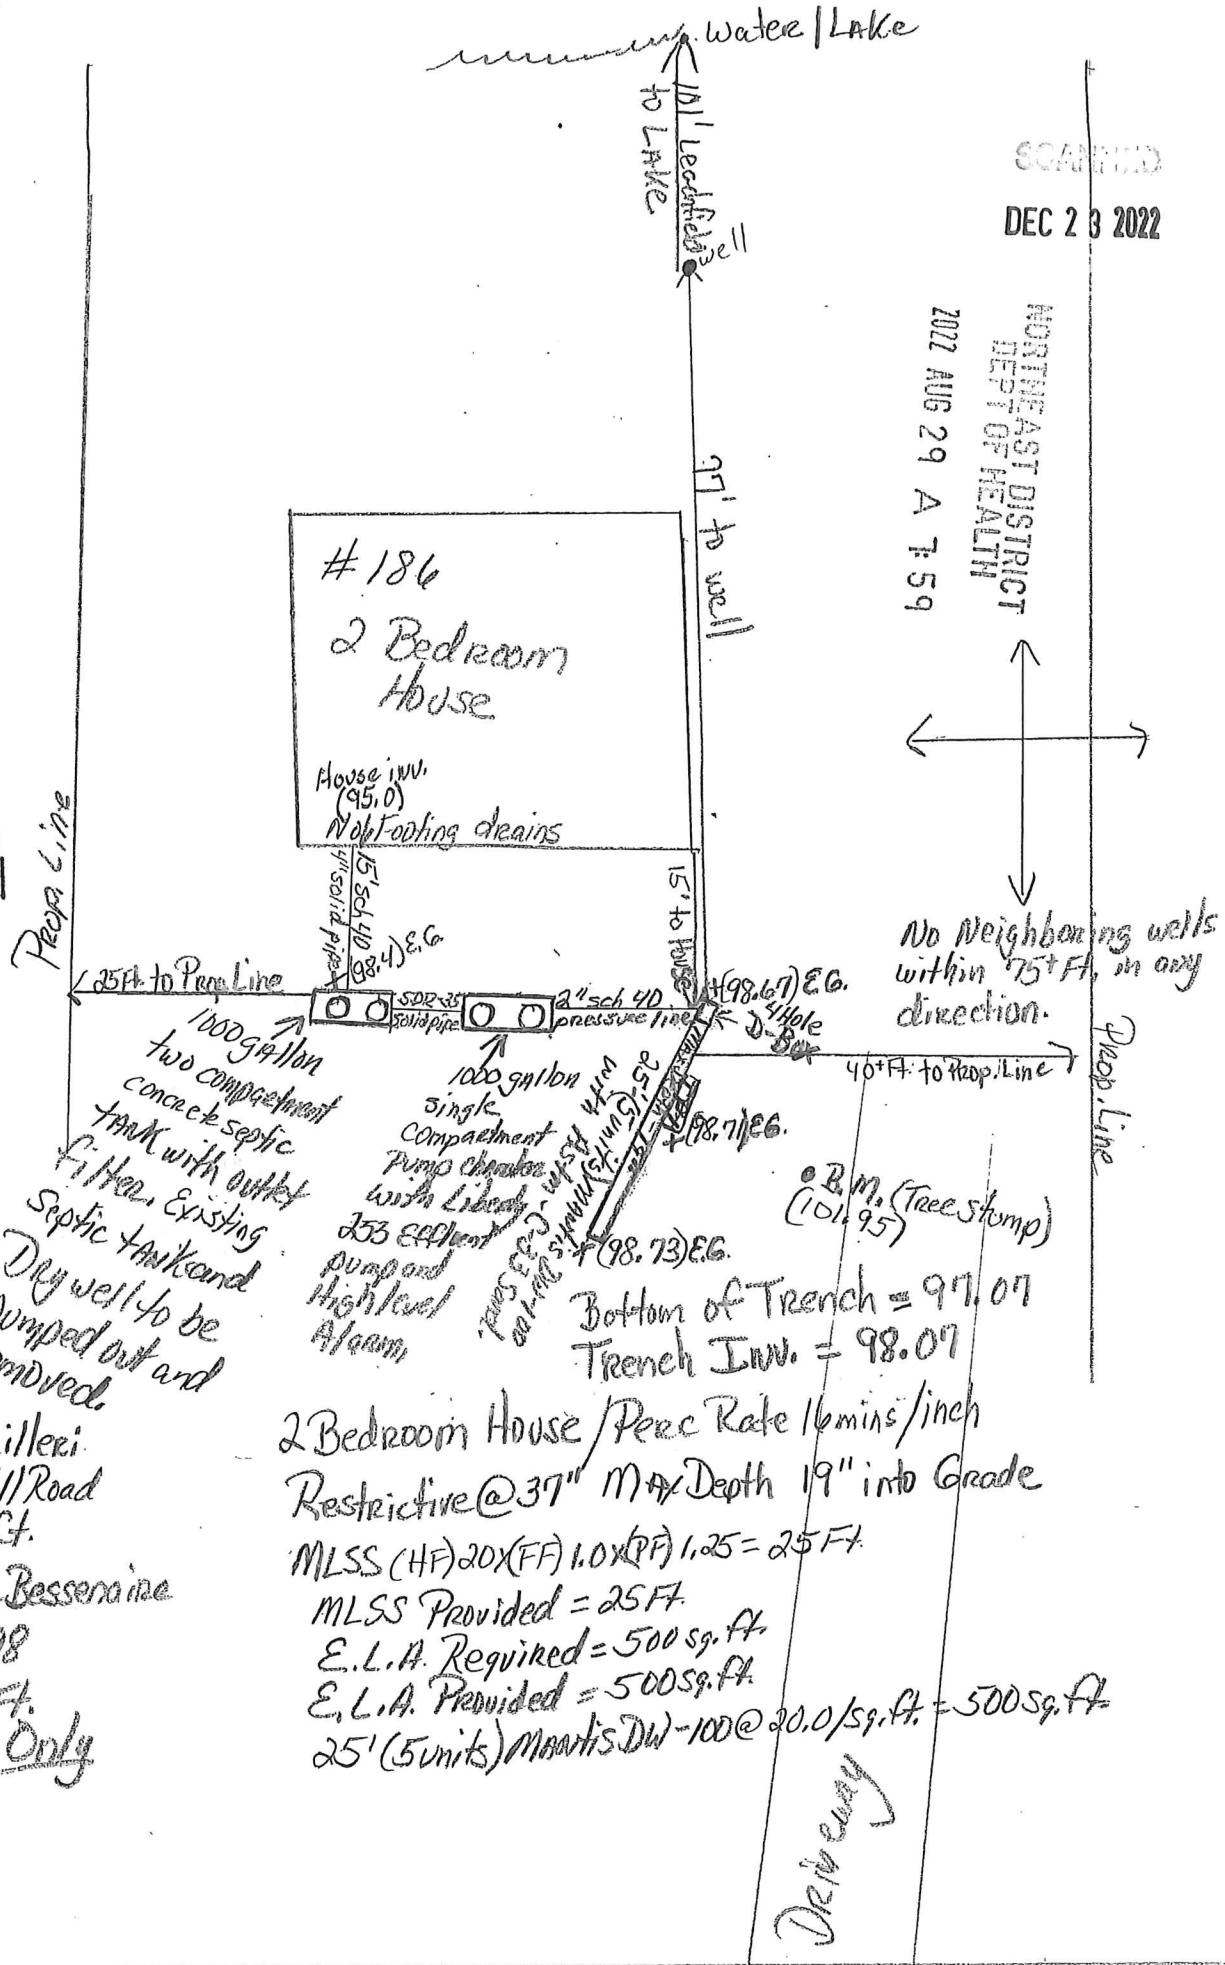 Water/LAKe
101' Leachfield
to LAKe
well
SCANNED
DEC 23 2022
NORTHEAST DISTRICT
DEPT OF HEALTH
2022 AUG 29 A 7:59
97' to well
#186
2 Bedroom
House
House inv.
(95.0)
No Footing drains
Prop. Line
15' sch 40
4" solid pipe
(98.4) E.G.
15' to House
No Neighboring wells
within 75+ Ft. in any
direction.
25Ft. to Prop Line
SDR-35
solid pipe
2" sch 40
pressure line
(98.67) E.G.
4 Hole
D-Box
40+ Ft. to Prop. Line
Prop. Line
1000 gallon
two compartment
concrete septic
TANK with outlet
filter. Existing
Septic tank and
Dry well to be
pumped out and
removed.
1000 gallon
single
compartment
Pump chamber
with Liberty
253 Effluent
pump and
High level
Alarm.
25' (5 units) Mantis DW-100
with ASTM-C-33 Sand.
(98.71) E.G.
(98.73) E.G.
B.M. (Tree stump)
(101.95)
Bottom of Trench = 97.07
Trench Inv. = 98.07
2 Bedroom House / Perc Rate 16 mins/inch
Restrictive @ 37" Max Depth 19" into Grade
MLSS (HF) 20 x (FF) 1.0 x (PF) 1.25 = 25 Ft.
MLSS Provided = 25 Ft.
E.L.A. Required = 500 sq. ft.
E.L.A. Provided = 500 sq. ft.
25' (5 units) Mantis DW-100 @ 20.0/sq. ft. = 500 sq. ft.
illeri
ll Road
Ct.
Bessenaire
98
Ft.
Only
Driveway